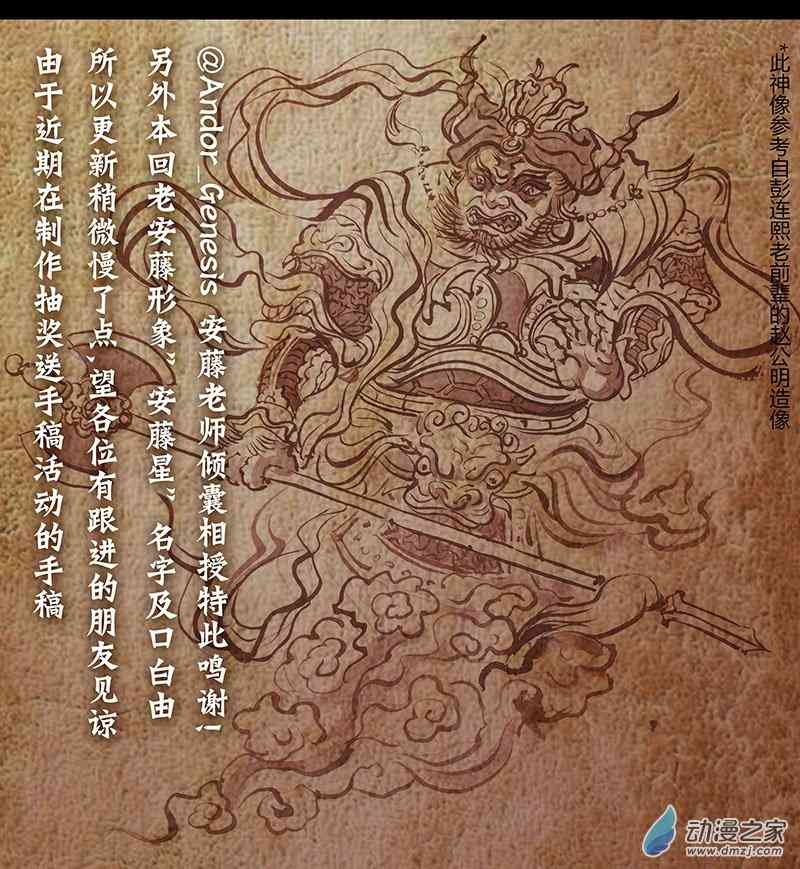 由于近期在制作抽奖送手稿活动的手稿
所以更新稍微慢了点、望各位有跟进的朋友见谅
另外本回老安藤形象”安藤星”名字及口白由
@Andor_Genesis 安藤老师倾囊相授特此鸣谢!
*此神像参考自彭连熙老前辈的赵公明造像
动漫之家
www.dmzj.com